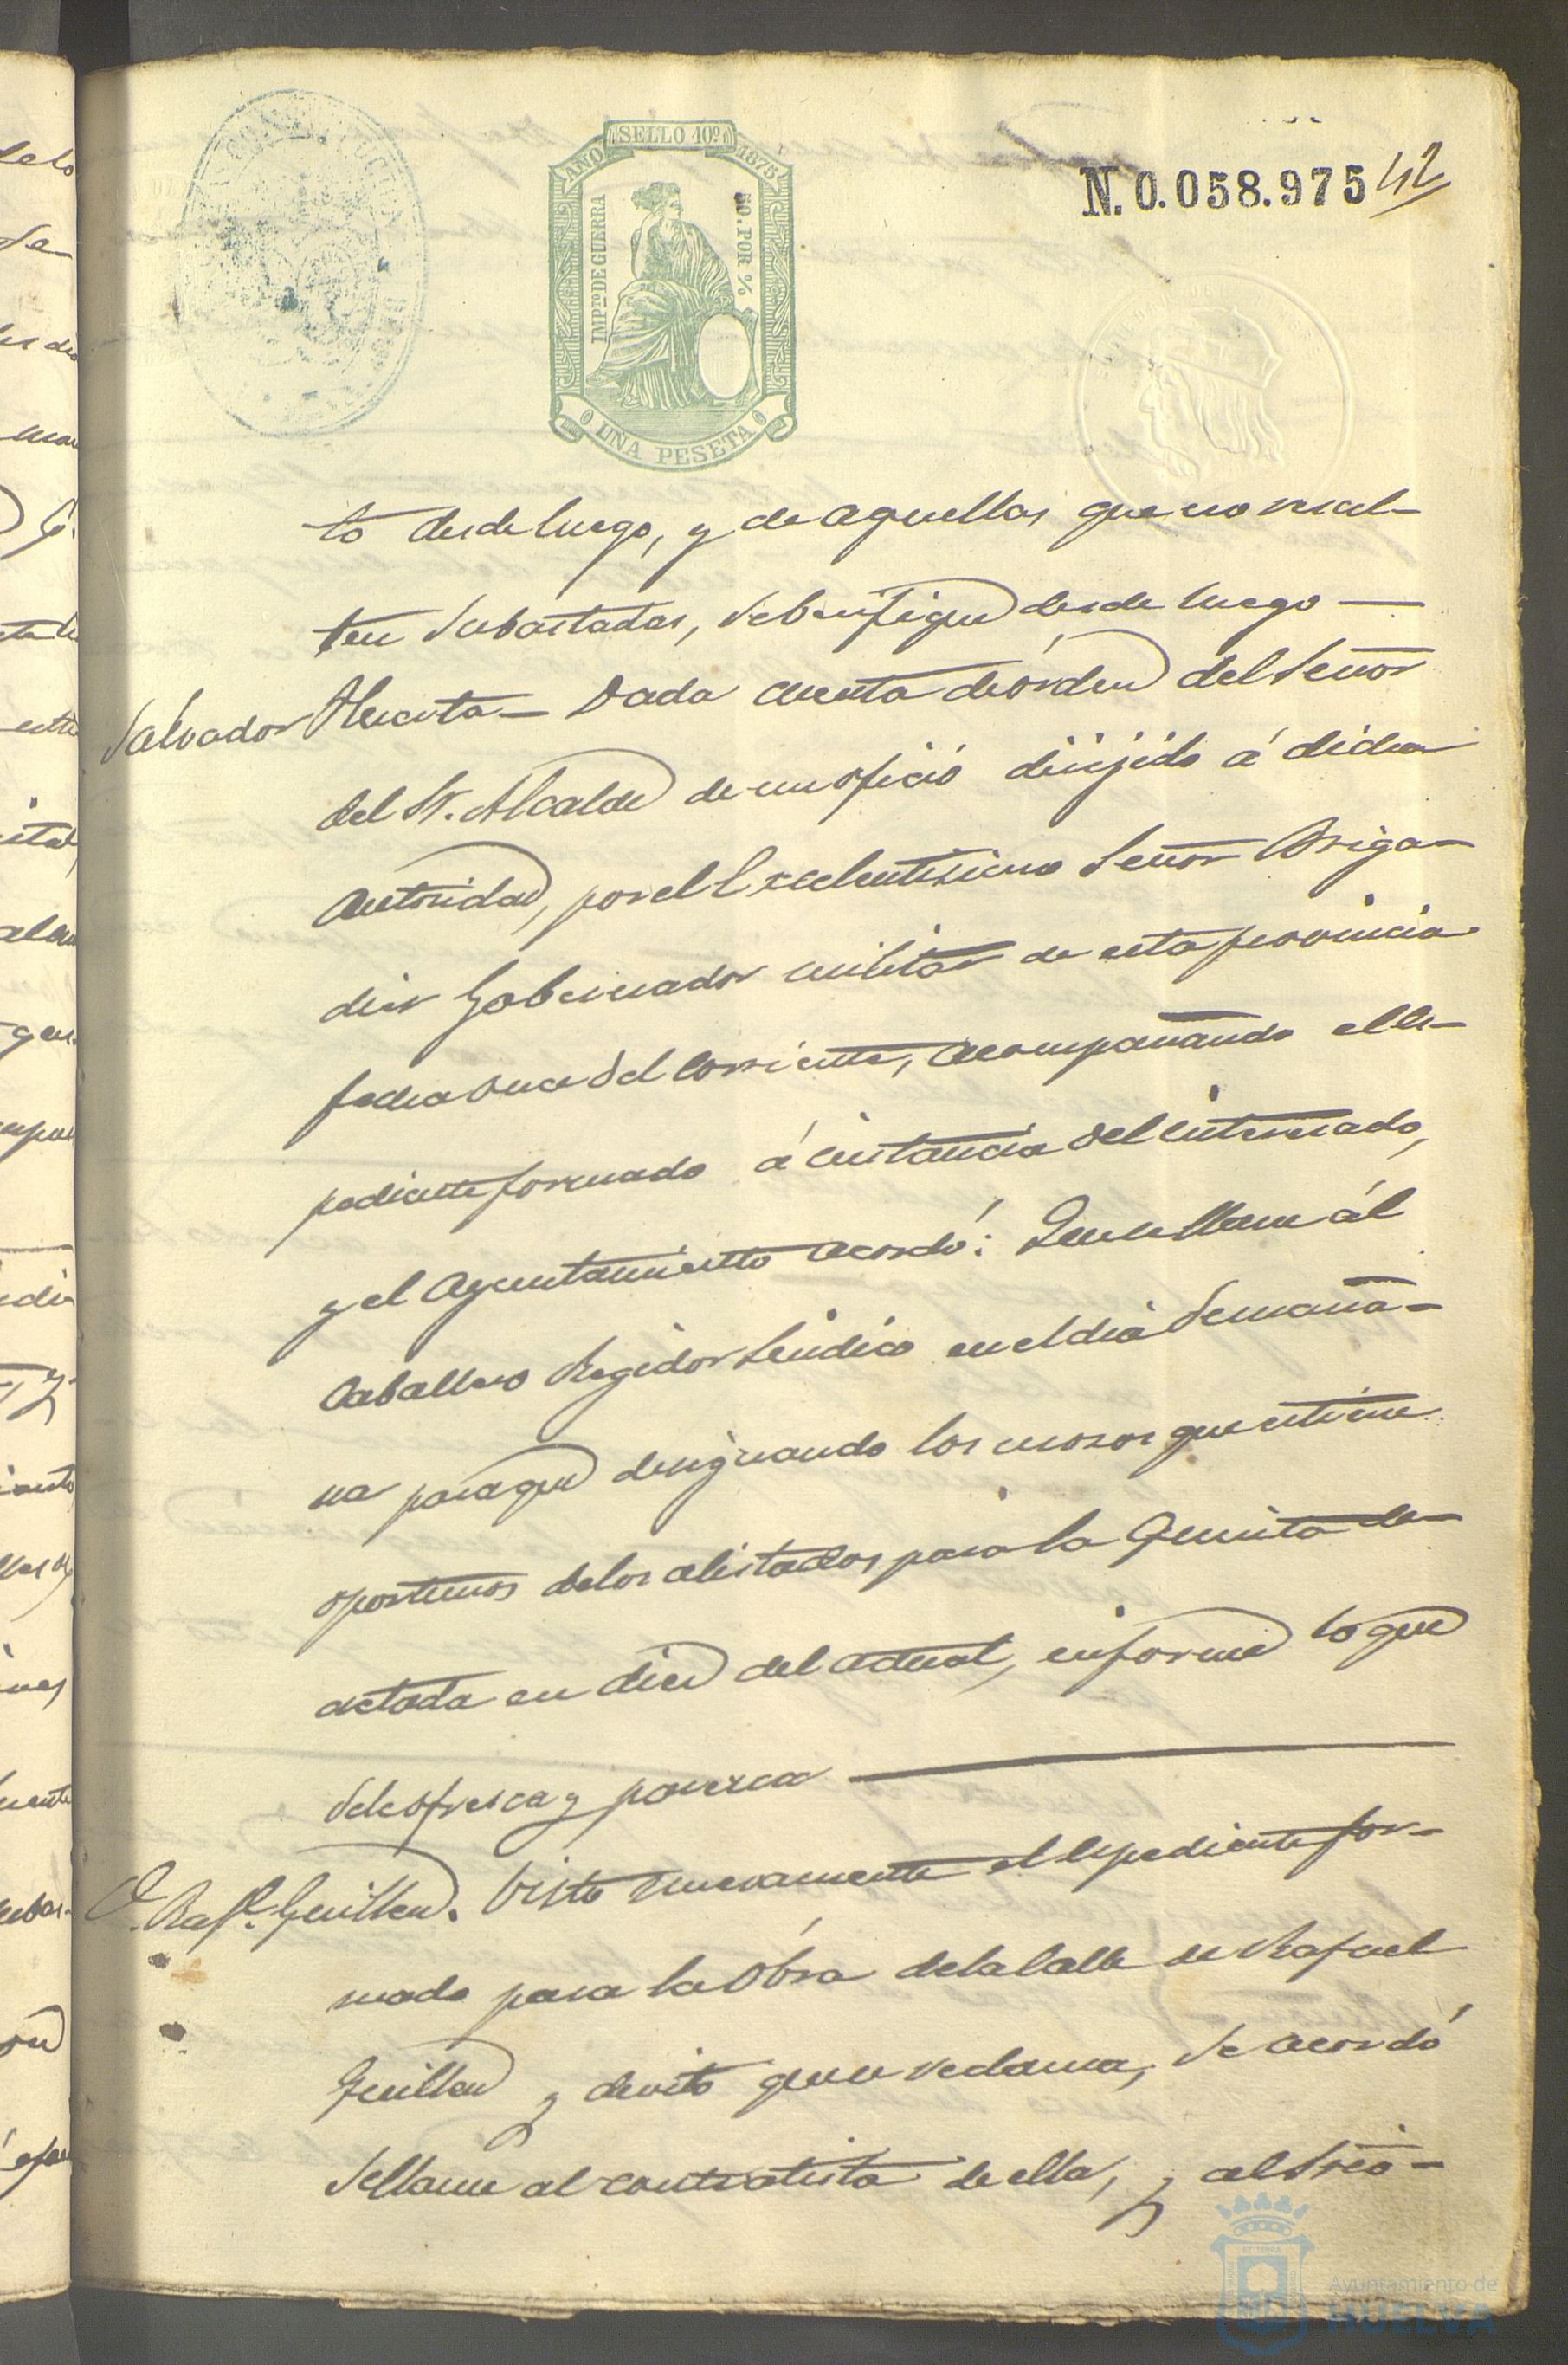 SELLO 10º
AÑO 1875
IMPTO DE GUERRA
50. POR %
UNA PESETA
N. 0.058.975
42
to desde luego, y de aquellas que no resul-
ten subastadas, se berifique desde luego —
Salvador Huerta — Dada cuenta de órden del Señor
del Sr. Alcalde de un oficio dirijido á dicha
autoridad, por el Excelentisimo Señor Briga-
dier Gobernador militar de esta provincia
fecha once del corriente, acompañando el es-
pediente formado á instancia del interesado,
y el Ayuntamiento acordó: Que se llame ál
Caballero Regidor Sindico en el dia de maña-
na para que designando los mozos que estime
oportunos de los alistados para la Quinta de-
cretada en diez del actual, informe lo que
se le ofresca y paresca —
D. Rafl. Guillen. Visto nuevamente el espediente for-
mado para la Obra de la Calle de Rafael
Guillen y devito que se reclama, se acordó
se llame al contratista de ella, y al Srio-
Ayuntamiento de
HUELVA